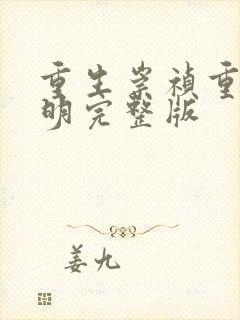 重生崇祯重
明完整版
姜九